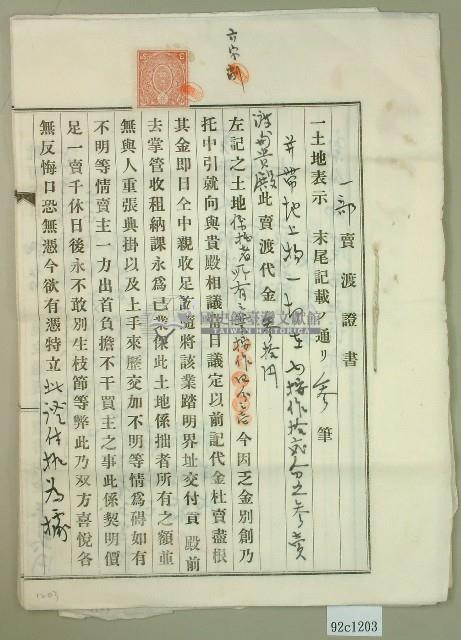 一部賣渡證書
一土地表示 末尾記載ノ通リ 參筆
并帶地上物一切在內
貴殿此賣渡代金
左記之土地係拙者所有 今因乏金別創乃
托中引就向與貴殿相議當日議定以前記代金杜賣盡根
其金即日仝中親收足訖隨將該業踏明界址交付貴殿前
去掌管收租納課永為己業保此土地係拙者所有之額並
無與人重張典掛以及上手來歷交加不明等情為碍如有
不明等情賣主一力出首負擔不干買主之事此係契明價
足一賣千休日後永不敢別生枝節等弊此乃双方喜悅各
無反悔口恐無憑今欲有憑特立此證付執為據
國史館臺灣文獻館
TAIWAN HISTORICA
1203
92c1203